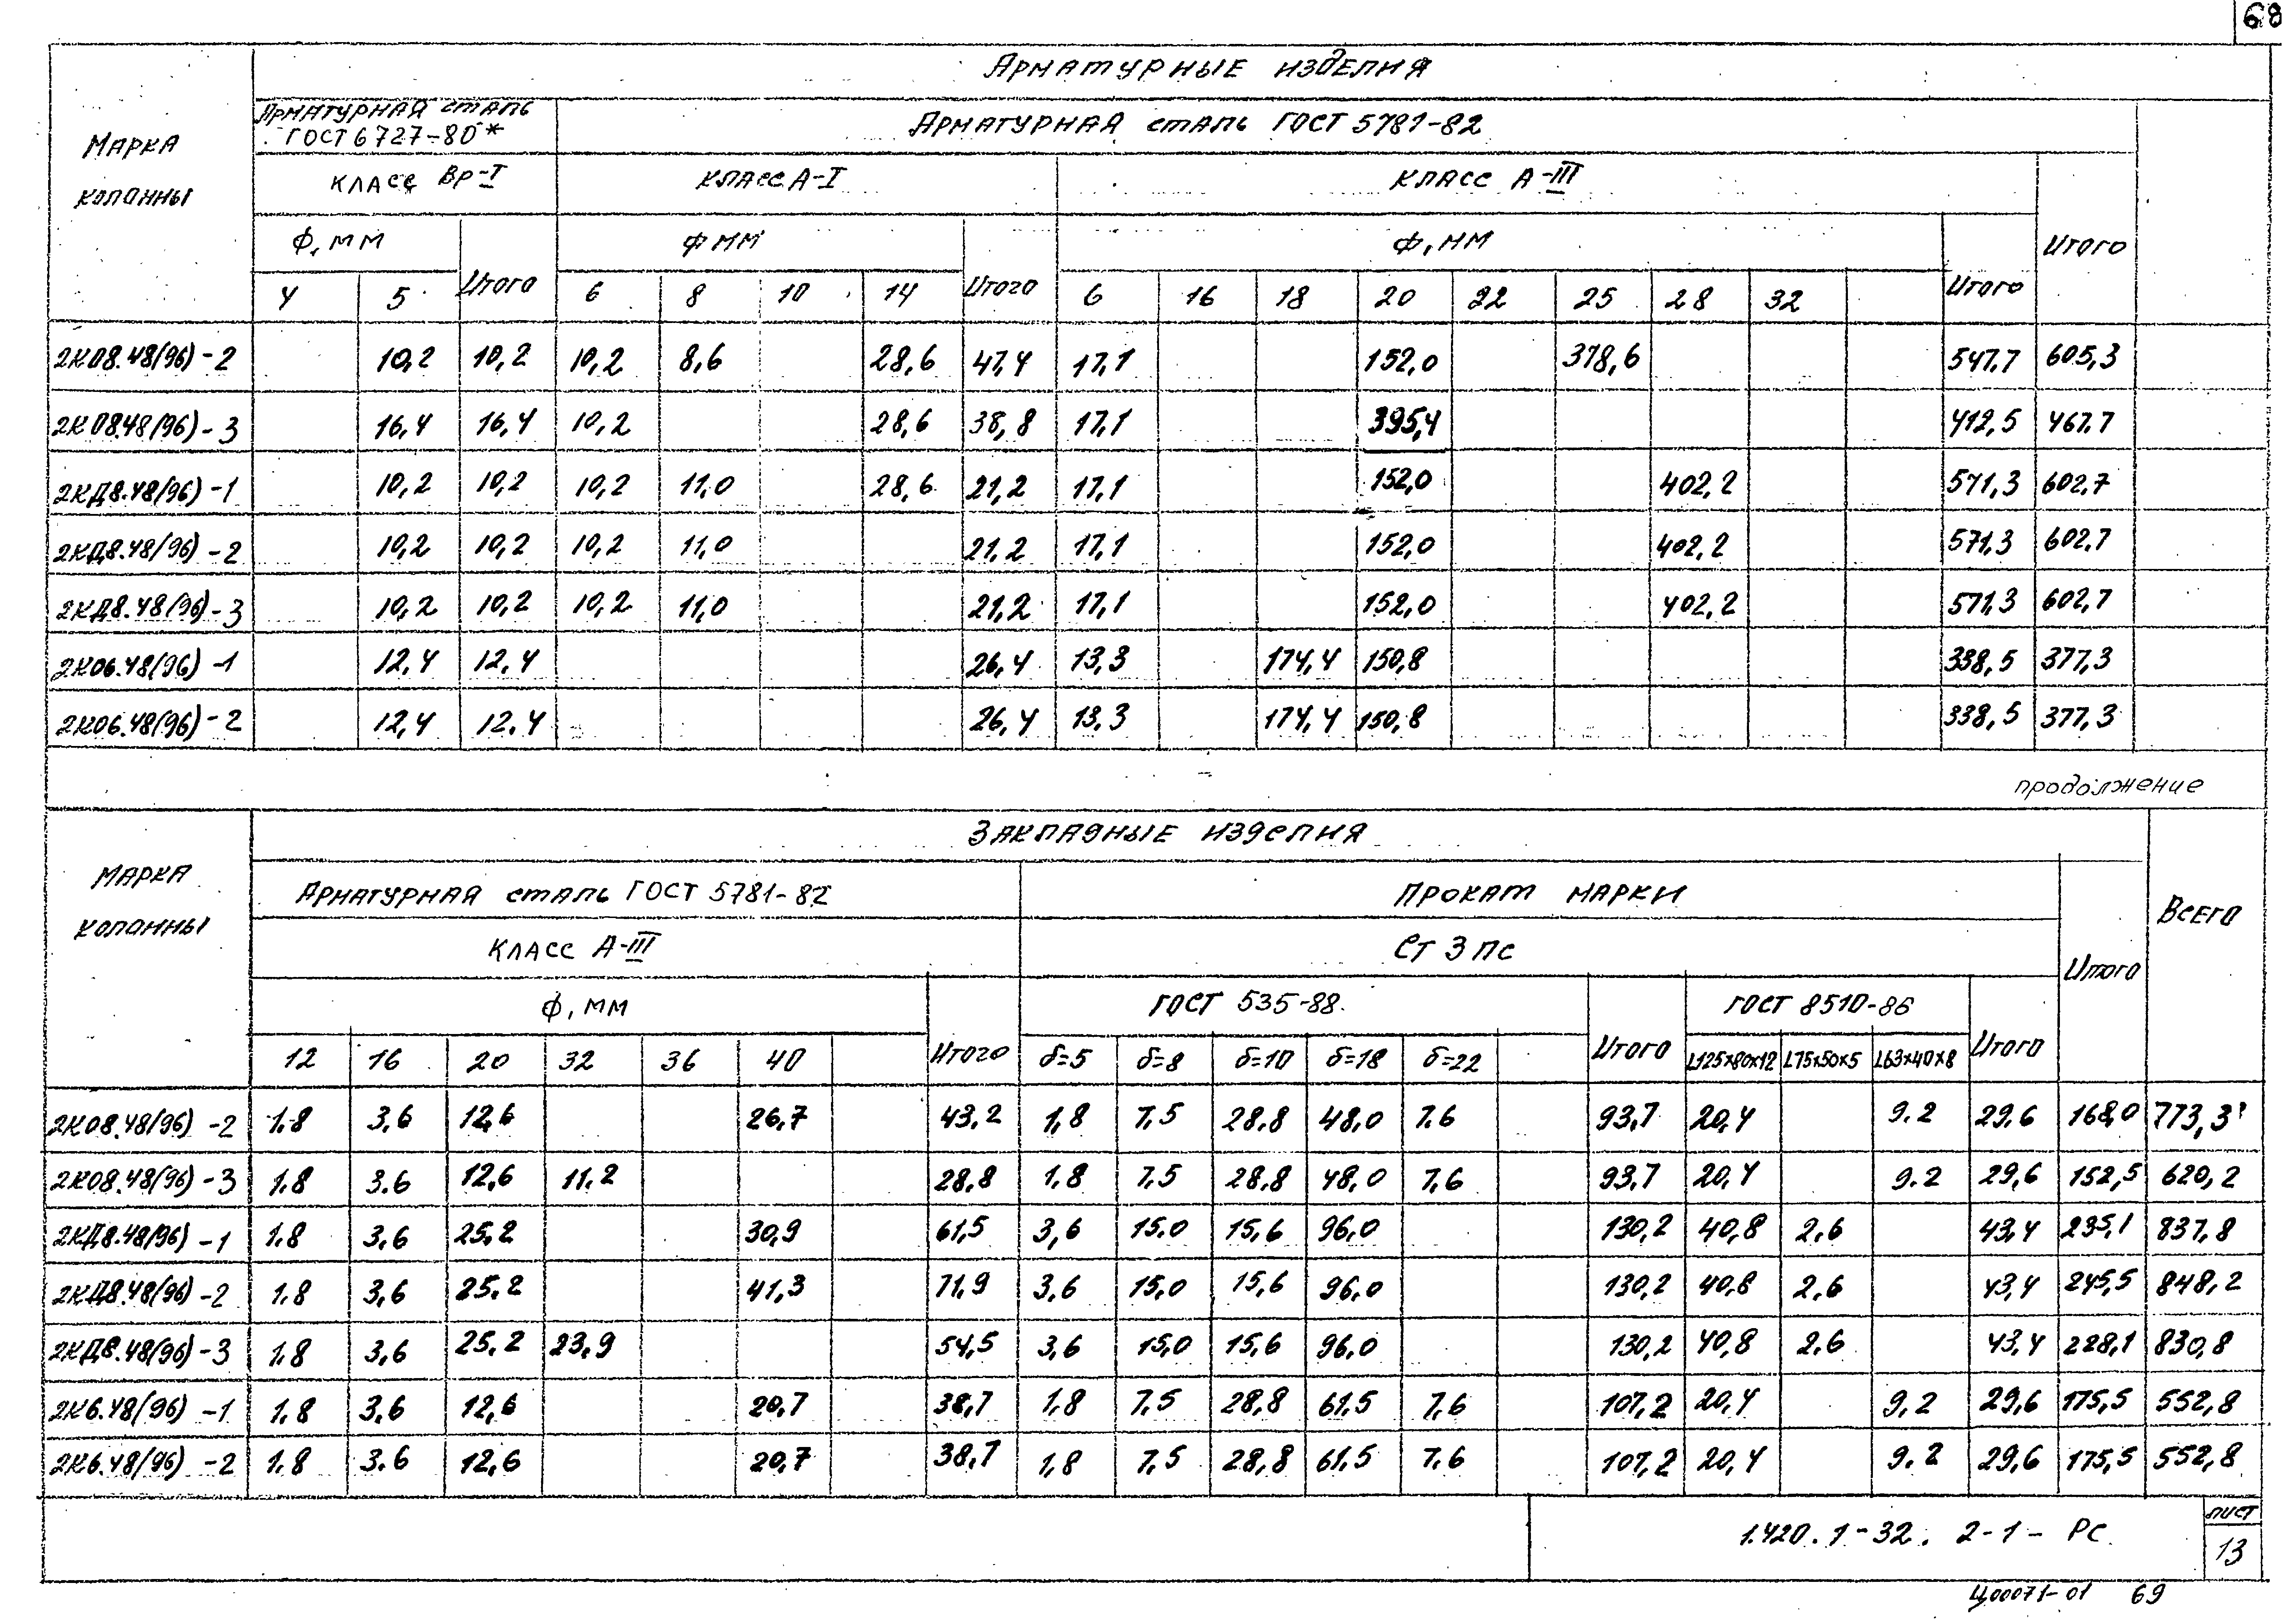 68
Арматурные изделия
Марка колонны
Арматурная сталь ГОСТ 6727-80*
Арматурная сталь ГОСТ 5781-82
Класс Вр-I
Класс А-I
Класс А-III
Итого
Ф, мм
Итого
Ф мм
Итого
Ф, мм
Итого
4 5 6 8 10 14 6 16 18 20 22 25 28 32
2К08.48(96)-2 10,2 10,2 10,2 8,6 28,6 47,4 17,1 152,0 378,6 547,7 605,3
2К08.48(96)-3 16,4 16,4 10,2 28,6 38,8 17,1 395,4 412,5 467.7
2КД8.48(96)-1 10,2 10,2 10,2 11,0 28,6 21,2 17,1 152,0 402,2 571,3 602,7
2КД8.48(96)-2 10,2 10,2 10,2 11,0 21,2 17,1 152,0 402,2 571,3 602,7
2КД8.48(96)-3 10,2 10,2 10,2 11,0 21,2 17,1 152,0 402,2 571,3 602,7
2К06.48(96)-1 12,4 12,4 26,4 13,3 174,4 150,8 338,5 377,3
2К06.48(96)-2 12,4 12,4 26,4 13,3 174,4 150,8 338,5 377,3
продолжение
Закладные изделия
Марка колонны
Арматурная сталь ГОСТ 5781-82
Прокат марки
Итого
Всего
Класс А-III
Ст 3 пс
Ф, мм
Итого
ГОСТ 535-88
Итого
ГОСТ 8510-86
Итого
12 16 20 32 36 40 δ=5 δ=8 δ=10 δ=18 δ=22 L125х80х12 L75х50х5 L63х40х8
2К08.48(96)-2 1.8 3.6 12,6 26,7 43,2 1,8 7,5 28,8 48,0 7.6 93,7 20,4 9.2 29,6 168,0 773,3
2К08.48(96)-3 1.8 3.6 12,6 11.2 28,8 1,8 7,5 28,8 48,0 7,6 93,7 20,4 9.2 29,6 152,5 620,2
2КД8.48(96)-1 1.8 3,6 25,2 30,9 61,5 3,6 15,0 15,6 96,0 130,2 40,8 2,6 43,4 235,1 837,8
2КД8.48(96)-2 1.8 3,6 25,2 41,3 71,9 3,6 15,0 15,6 96,0 130,2 40,8 2,6 43,4 245,5 848,2
2КД8.48(96)-3 1.8 3,6 25,2 23,9 54,5 3,6 15,0 15,6 96,0 130,2 40,8 2,6 43,4 228,1 830,8
2К6.48(96)-1 1.8 3,6 12,6 20,7 38,7 1,8 7,5 28,8 61,5 7,6 107,2 20,4 9,2 29,6 175,5 552,8
2К6.48(96)-2 1.8 3.6 12,6 20,7 38,7 1,8 7,5 28,8 61,5 7,6 107,2 20,4 9.2 29,6 175,5 552,8
1.420.1-32. 2-1-РС
лист
13
Ц00071-01 69